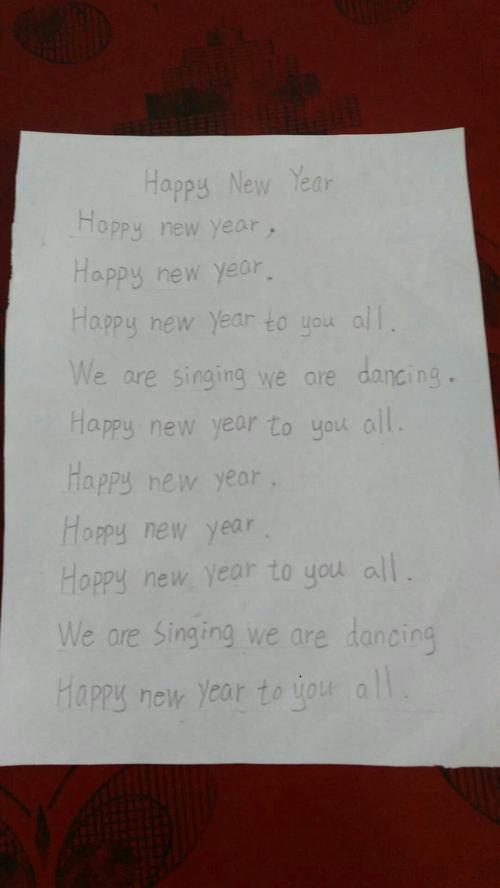 Happy New Year
Happy new year,
Happy new year.
Happy new year to you all.
We are singing we are dancing.
Happy new year to you all.
Happy new year.
Happy new year.
Happy new year to you all.
We are singing we are dancing
Happy new year to you all.